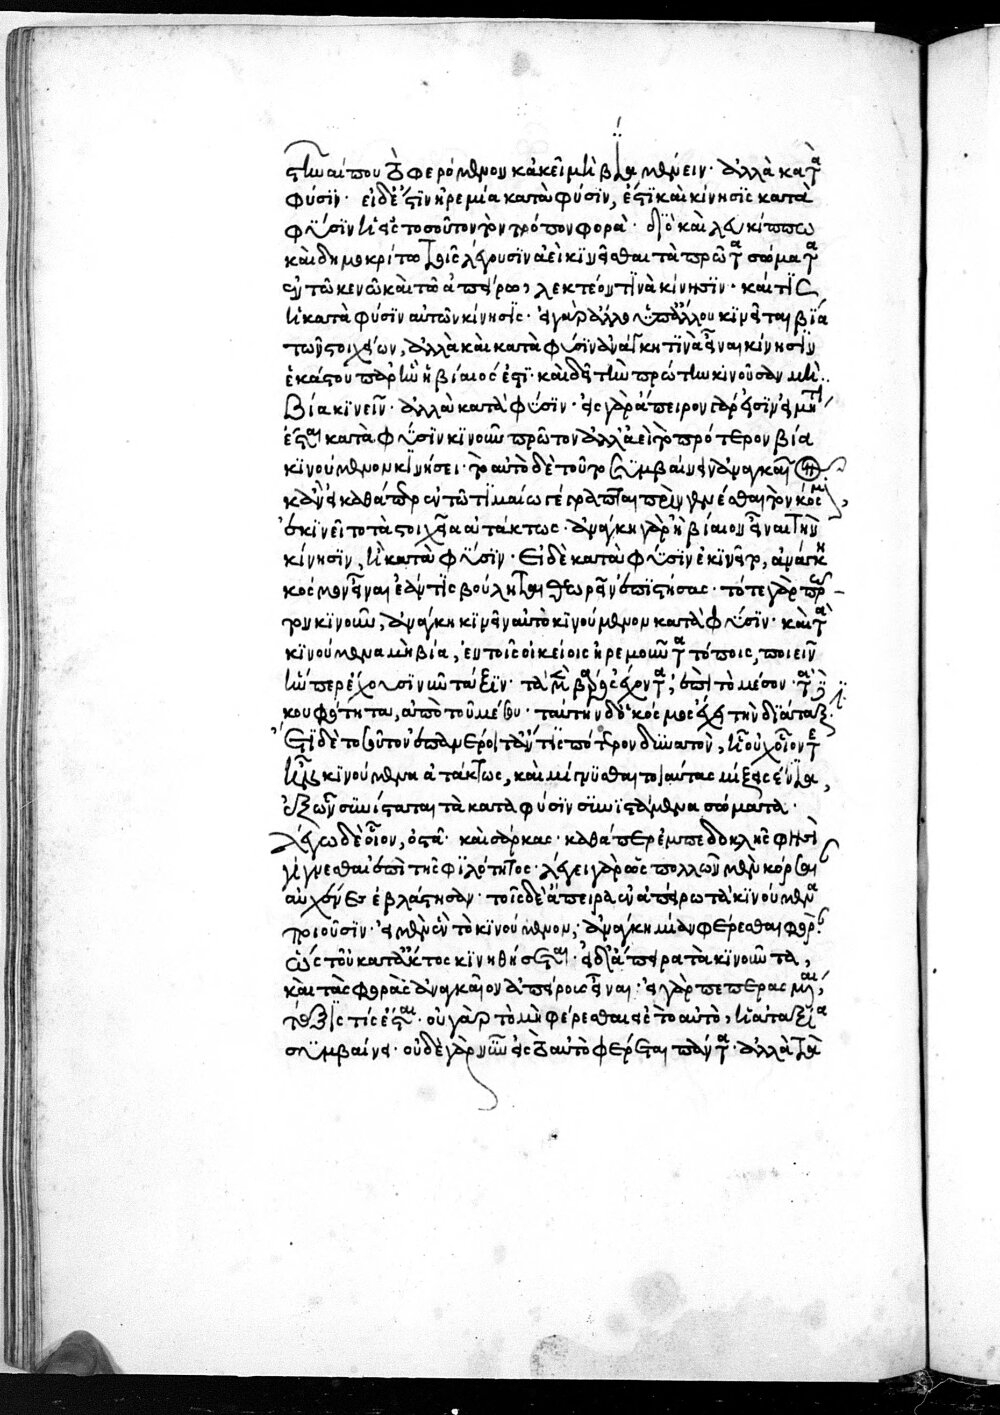 στῆναί που τὸ φερόμενον κἀκεῖ μὴ βίᾳ μένειν· ἀλλὰ κατὰ
φύσιν· εἰ δέ ἐστιν ἠρεμία κατὰ φύσιν, ἔστι καὶ κίνησις κατὰ
φύσιν ἡ εἰς τοῦτον τὸν τρόπον φορά· διὸ καὶ λευκίππω
καὶ δημοκρίτω τοῖς λέγουσιν ἀεὶ κινεῖσθαι τὰ πρῶτα σώματα
ἐν τῶ κενῶ καὶ τῶ ἀπείρω, λεκτέον τίνα κίνησιν· καὶ τίς
ἡ κατὰ φύσιν αὐτῶν κίνησις· εἰ γὰρ ἄλλο ὑπ' ἄλλου κινεῖται βία
τῶν στοιχείων, ἀλλὰ καὶ κατὰ φύσιν ἀνάγκη τινὰ εἶναι κίνησιν
ἑκάστου παρ' ἣν ἡ βίαιός ἐστι· καὶ δεῖ τὴν πρώτην κινοῦσαν μὴ
βία κινεῖν· ἀλλὰ κατὰ φύσιν· εἰς γὰρ ἄπειρον εἶσιν εἰ μή τι
ἔσται κατὰ φύσιν κινοῦν πρῶτον ἀλλ' ἀεὶ τὸ πρότερον βία
κινούμενον κινήσει· τὸ αὐτὸ δὲ τοῦτο συμβαίνειν ἀναγκαῖον
κἂν εἰ καθάπερ ἐν τῶ τιμαίω γέγραπται πρὶν γενέσθαι τὸν κόσμον
ἐκινεῖτο τὰ στοιχεῖα ἀτάκτως· ἀνάγκη γὰρ ἢ βίαιον εἶναι τὴν
κίνησιν, ἢ κατὰ φύσιν· εἰ δὲ κατὰ φύσιν ἐκινεῖτο, ἀνάγκη
κόσμον εἶναι ἐάν τις βούληται θεωρεῖν ἐπιστήσας· τό τε γὰρ πρῶ-
τον κινοῦν, ἀνάγκη κινεῖν αὐτὸ κινούμενον κατὰ φύσιν· καὶ τὰ
κινούμενα μὴ βία, ἐν τοῖς οἰκείοις ἠρεμοῦντα τόποις, ποιεῖν
ἣν περ ἔχουσι νῦν τάξιν· τὰ μὲν βάρος ἔχοντα, ἐπὶ τὸ μέσον· τὰ δὲ
κουφότητα, ἀπὸ τοῦ μέσου· ταύτην δ' ὁ κόσμος ἔχει τὴν διάταξιν·
ἔτι δὲ τοσοῦτον ἐπανέροιτ' ἄν τις πότερον δυνατὸν, ἢ οὐχ οἷόν τε
ἦν κινούμενα ἀτάκτως, καὶ μίγνυσθαι τοιαύτας μίξεις ἔνια,
ἐξ ὧν συνίσταται τὰ κατὰ φύσιν συνιστάμενα σώματα·
λέγω δὲ οἷον, ὀστᾶ· καὶ σάρκας· καθάπερ ἐμπεδοκλῆς φησὶ
γίγνεσθαι ἐπὶ τῆς φιλότητος· λέγει γὰρ ὡς πολλῶν μὲν κόρσαι
αὐχένες ἐβλάστησαν· τοῖς δὲ ἄπειρα ἐν ἀπείρω τὰ κινούμενα
ποιοῦσιν· εἰ μὲν ἓν τὸ κινούμενον, ἀνάγκη μίαν φέρεσθαι φοράν·
ὥστ' οὐκ ἀτάκτως κινηθήσεται· εἰ δὲ ἄπειρα τὰ κινοῦντα,
καὶ τὰς φορὰς ἀναγκαῖον ἀπείρους εἶναι· εἰ γὰρ πεπερασμέναι,
τάξις τις ἔσται· οὐ γὰρ τὸ μὴ φέρεσθαι εἰς τὸ αὐτὸ, ἡ ἀταξία
συμβαίνει· οὐδὲ γὰρ νῦν εἰς τὸ αὐτὸ φέρεται πάντα· ἀλλὰ τὰ